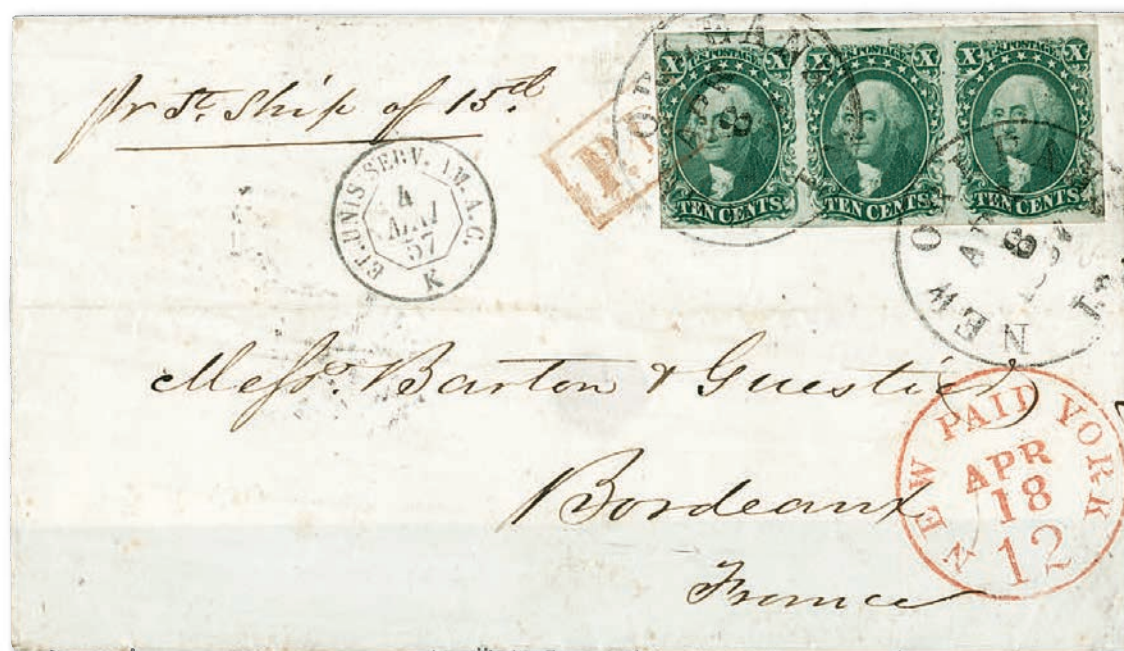 pr St. Ship of 15th
ET. UNIS SERV. AM. A.C.
4
MAI
57
K
P.
ORLEANS
APR
8
X U.S. POSTAGE X
TEN CENTS
X U.S. POSTAGE X
TEN CENTS
X U.S. POSTAGE X
TEN CENTS
NEW
8
Messrs. Barton & Guestier
Bordeaux
France
NEW PAID YORK
APR
18
12